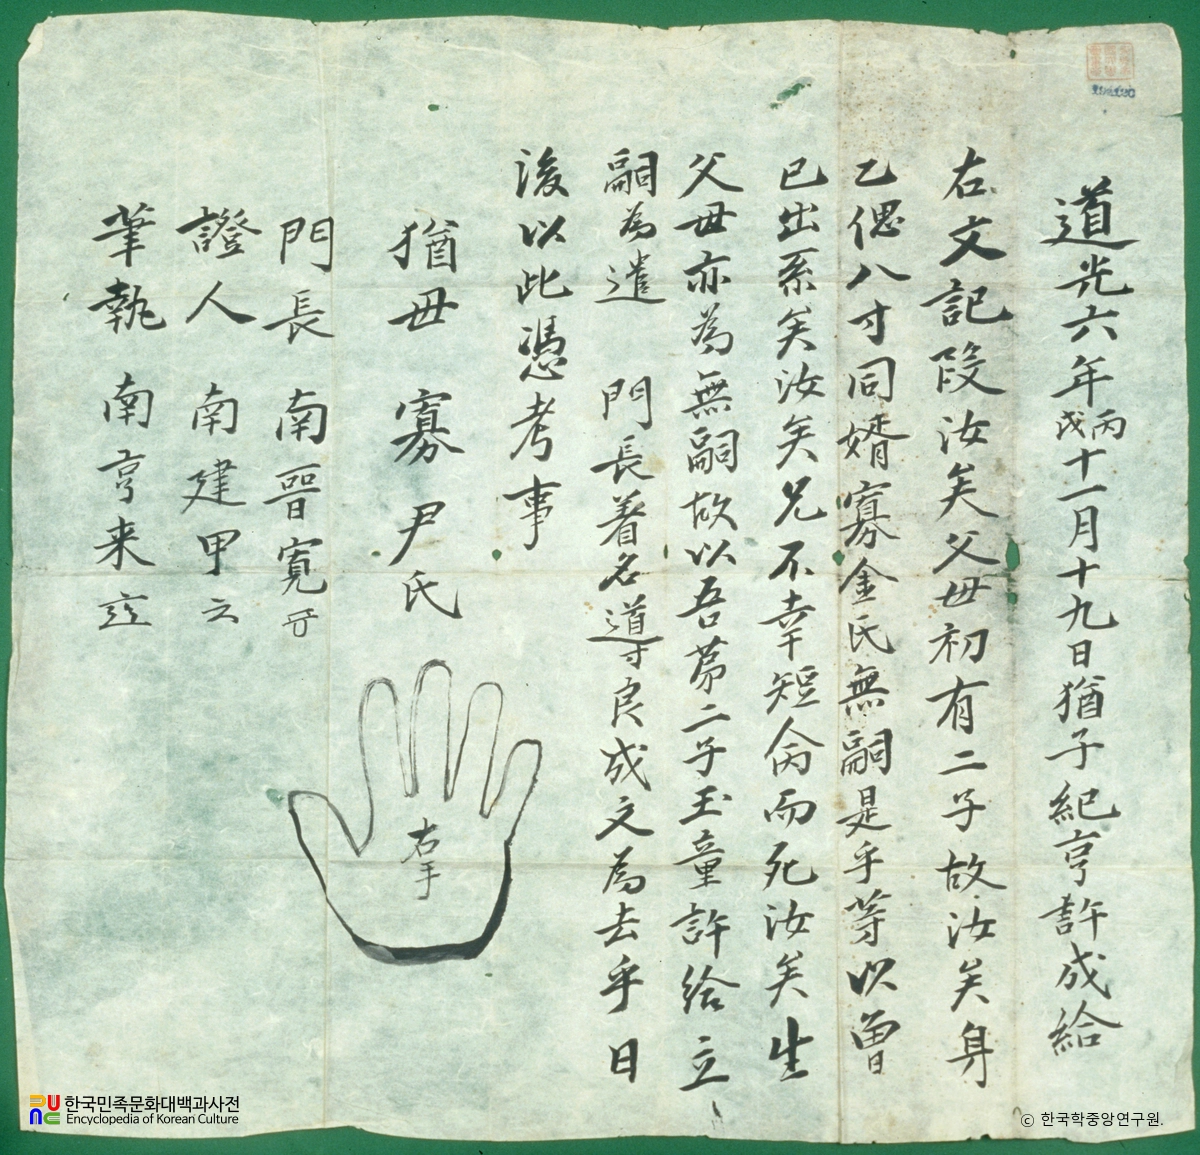 道光六年丙戌十一月十九日猶子紀亨許成給
右文記段汝矣父母初有二子故汝矣身
乙偲八寸同婿寡金氏無嗣是乎等以曽
已出系矣汝矣兄不幸短命而死汝矣生
父母亦為無嗣故以吾第二子玉童許給立
嗣為遣 門長着名導良成文為去乎日
後以此憑考事
猶母 寡 尹氏
右手
門長 南晋寛
證人 南建甲
筆執 南亨来
한국민족문화대백과사전
Encyclopedia of Korean Culture
ⓒ 한국학중앙연구원.